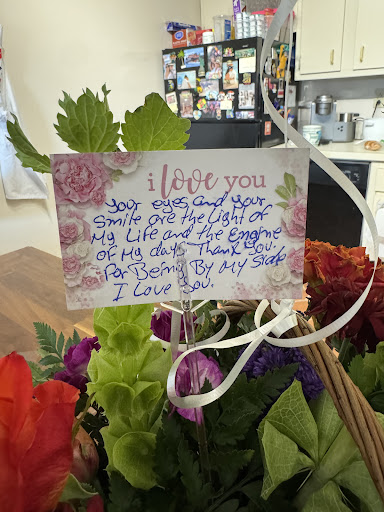 i love you
Your eyes and your
Smile are the Light of
My Life and the Engine
of My days Thank You.
For Being By My Side
I Love You.